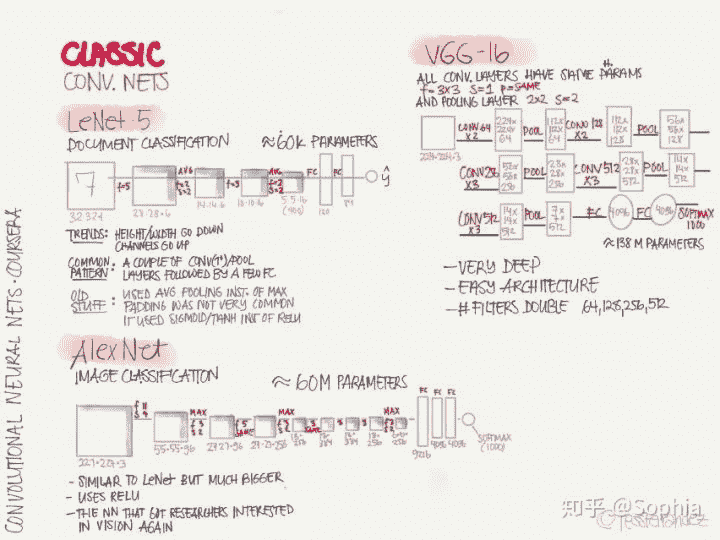 CLASSIC
CONV. NETS
LeNet-5
DOCUMENT CLASSIFICATION ≈60K PARAMETERS
7
f=5
AVG
f=2
S=2
f=5
AVG
f=2
S=2
FC
FC
ŷ
32·32·1
28·28·6
14·14·6
10·10·6
5·5·16
(400)
120
84
TRENDS: HEIGHT/WIDTH GO DOWN
CHANNELS GO UP
COMMON PATTERN: A COUPLE OF CONV(1+)/POOL
LAYERS FOLLOWED BY A FEW FC
OLD STUFF: USED AVG POOLING INST. OF MAX
PADDING WAS NOT VERY COMMON
IT USED SIGMOID/TANH INST OF RELU
AlexNet
IMAGE CLASSIFICATION ≈ 60M PARAMETERS
f 11
S 4
MAX
f 3
S 2
f 5
SAME
MAX
f 3
S 2
3
SAME
3
3
MAX
FC
FC
FC
227·227·3
55·55·96
27·27·96
27·27·256
9216
4096
4096
SOFTMAX
(1000)
- SIMILAR TO LeNet BUT MUCH BIGGER
- USES RELU
- THE NN THAT GOT RESEARCHERS INTERESTED
IN VISION AGAIN
VGG-16
ALL CONV. LAYERS HAVE SAME PARAMS
f=3X3 S=1 P=SAME
AND POOLING LAYER 2X2 S=2
224·224·3
CONV 64
X2
224x
224x
64
POOL
112x
112x
64
CONV 128
X2
112x
112x
128
POOL
56x
56x
128
CONV 256
X3
56x
56x
256
POOL
28x
28x
256
CONV 512
X3
28x
28x
512
POOL
14x
14x
512
CONV 512
X3
14x
14x
512
POOL
7x
7x
512
FC
4096
FC
4096
SOFTMAX
1000
≈138 M PARAMETERS
- VERY DEEP
- EASY ARCHITECTURE
- # FILTERS DOUBLE 64,128,256,512
CONVOLUTIONAL NEURAL NETS · COURSERA
知乎 @Sophia